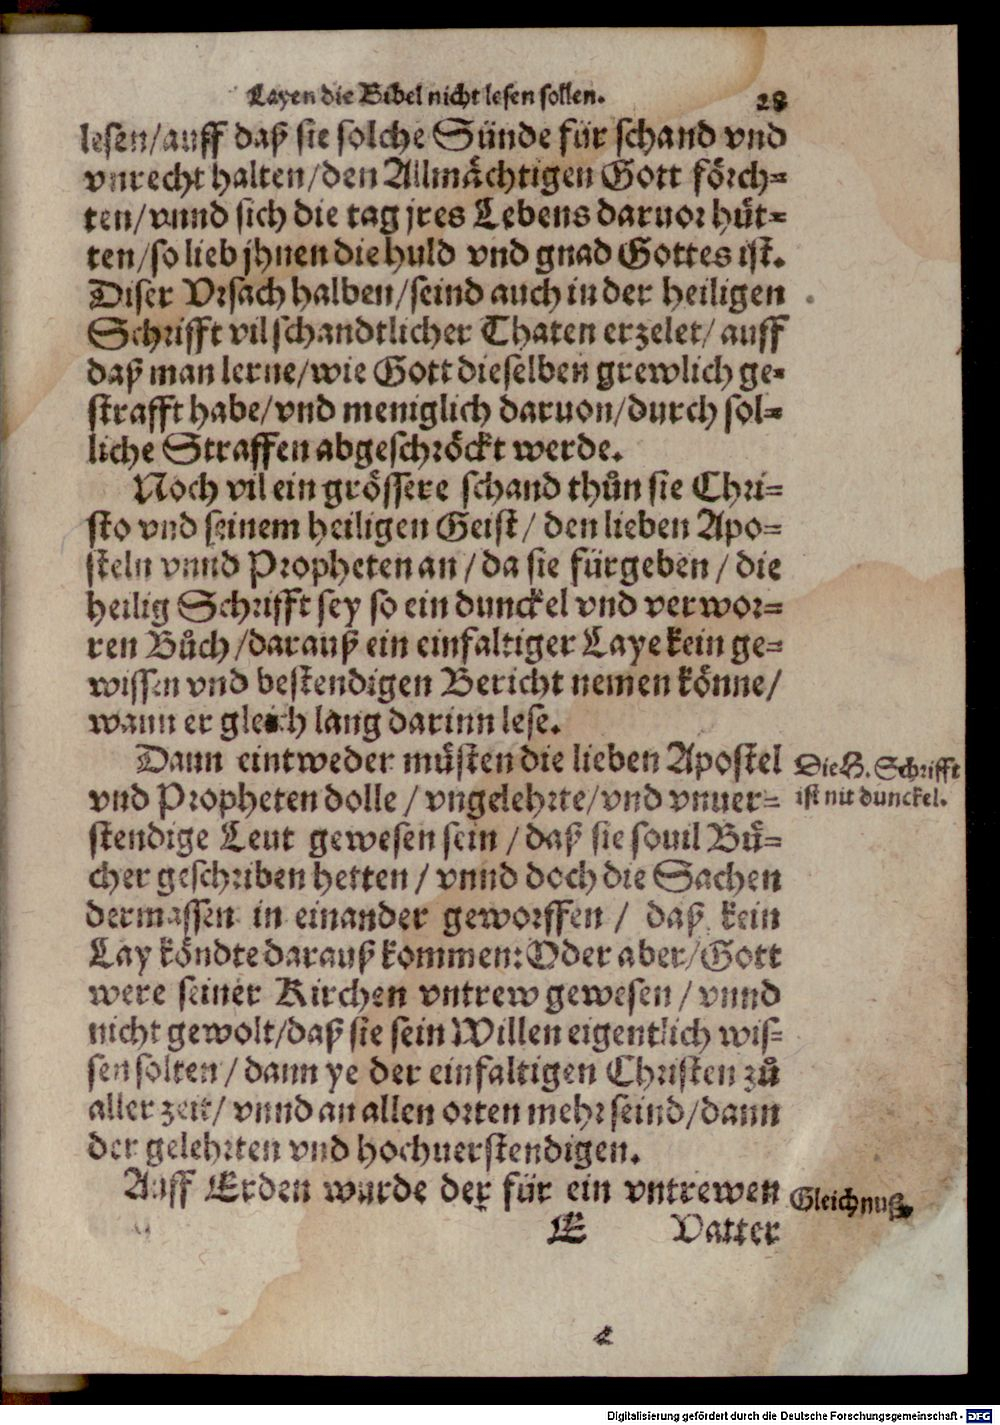 Layen die Bibel nicht lesen sollen. 28
lesen/auff daß sie solche Sünde für schand vnd
vnrecht halten/den Allmächtigen Gott förch=
ten/vnnd sich die tag jres Lebens daruor hüt=
ten/so lieb jhnen die huld vnd gnad Gottes ist.
Diser Vrsach halben/seind auch in der heiligen
Schrifft vil schandtlicher Thaten erzelet/auff
daß man lerne/wie Gott dieselben grewlich ge=
strafft habe/vnd meniglich daruon/durch sol=
liche Straffen abgeschröckt werde.
Noch vil ein grössere schand thůn sie Chri=
sto vnd seinem heiligen Geist/den lieben Apo=
steln vnnd Propheten an/da sie fürgeben/die
heilig Schrifft sey so ein dunckel vnd verwor=
ren Bůch/darauß ein einfaltiger Laye kein ge=
wissen vnd bestendigen Bericht nemen könne/
wann er gleich lang darinn lese.
Dann eintweder müsten die lieben Apostel
vnd Propheten dolle/vngelehrte/vnd vnuer=
stendige Leut gewesen sein/daß sie souil Bü=
cher geschriben hetten/vnnd doch die Sachen
dermassen in einander geworffen/daß kein
Lay köndte darauß kommen: Oder aber/Gott
were seiner Kirchen vntrew gewesen/vnnd
nicht gewolt/daß sie sein Willen eigentlich wis=
sen solten/dann ye der einfaltigen Christen zů
aller zeit/vnnd an allen orten mehr seind/dann
der gelehrten vnd hochuerstendigen.
Auff Erden wurde der für ein vntrewen
E Vatter
Die H. Schrifft
ist nit dunckel.
Gleichnuß.
Digitalisierung gefördert durch die Deutsche Forschungsgemeinschaft - DFG